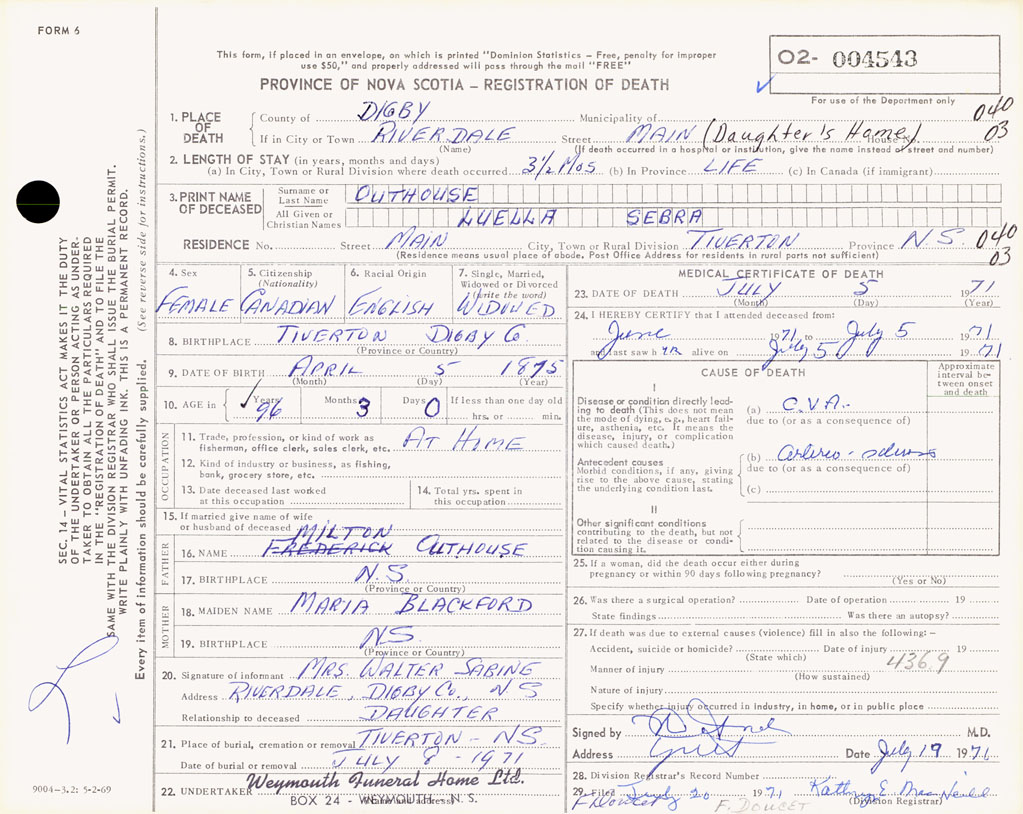 FORM 6
This form, if placed in an envelope, on which is printed "Dominion Statistics – Free, penalty for improper
use $50," and properly addressed will pass through the mail "FREE"
02- 004543
PROVINCE OF NOVA SCOTIA – REGISTRATION OF DEATH
For use of the Department only
1. PLACE OF DEATH
County of DIGBY Municipality of 040
If in City or Town RIVERDALE Street MAIN (Daughter's Home) House No. 03
(Name) (If death occurred in a hospital or institution, give the name instead of street and number)
2. LENGTH OF STAY (in years, months and days)
(a) In City, Town or Rural Division where death occurred 3½ MOS (b) In Province LIFE (c) In Canada (if immigrant)
3. PRINT NAME OF DECEASED
Surname or Last Name OUTHOUSE
All Given or Christian Names LUELLA SEBRA
RESIDENCE No. Street MAIN City, Town or Rural Division TIVERTON Province N.S. 040 03
(Residence means usual place of abode. Post Office Address for residents in rural parts not sufficient)
4. Sex FEMALE
5. Citizenship (Nationality) CANADIAN
6. Racial Origin ENGLISH
7. Single, Married, Widowed or Divorced (Write the word) WIDOWED
8. BIRTHPLACE TIVERTON DIGBY CO.
(Province or Country)
9. DATE OF BIRTH APRIL 5 1875
(Month) (Day) (Year)
10. AGE in Years 96 Months 3 Days 0 If less than one day old hrs. or min.
OCCUPATION
11. Trade, profession, or kind of work as fisherman, office clerk, sales clerk, etc. AT HOME
12. Kind of industry or business, as fishing, bank, grocery store, etc.
13. Date deceased last worked at this occupation
14. Total yrs. spent in this occupation
15. If married give name of wife or husband of deceased
FATHER
MILTON
16. NAME FREDERICK OUTHOUSE
17. BIRTHPLACE N.S.
(Province or Country)
MOTHER
18. MAIDEN NAME MARIA BLACKFORD
19. BIRTHPLACE N.S.
(Province or Country)
20. Signature of informant MRS. WALTER SABINE
Address RIVERDALE, DIGBY CO., N S
Relationship to deceased DAUGHTER
21. Place of burial, cremation or removal TIVERTON - NS.
Date of burial or removal JULY 8 - 1971
22. UNDERTAKER Weymouth Funeral Home Ltd.
BOX 24 - WEYMOUTH, N. S.
MEDICAL CERTIFICATE OF DEATH
23. DATE OF DEATH JULY 5 1971
(Month) (Day) (Year)
24. I HEREBY CERTIFY that I attended deceased from:
June 1971 to July 5 1971
and last saw her alive on July 5 1971
CAUSE OF DEATH
Approximate interval between onset and death
I
Disease or condition directly leading to death (This does not mean the mode of dying, e.g., heart failure, asthenia, etc. It means the disease, injury, or complication which caused death.)
(a) C.V.A.
due to (or as a consequence of)
Antecedent causes
Morbid conditions, if any, giving rise to the above cause, stating the underlying condition last.
(b)
due to (or as a consequence of)
(c)
II
Other significant conditions contributing to the death, but not related to the disease or condition causing it.
25. If a woman, did the death occur either during pregnancy or within 90 days following pregnancy?
(Yes or No)
26. Was there a surgical operation? Date of operation 19
State findings Was there an autopsy?
27. If death was due to external causes (violence) fill in also the following: –
Accident, suicide or homicide? Date of injury 19
(State which) 436.9
Manner of injury
(How sustained)
Nature of injury
Specify whether injury occurred in industry, in home, or in public place
Signed by M.D.
Address Date July 19 1971
28. Division Registrar's Record Number
29. Filed July 20 1971 Kathryn E. MacNeill
F. Doucet F. DOUCET (Division Registrar)
SEC. 14 – VITAL STATISTICS ACT MAKES IT THE DUTY
OF THE UNDERTAKER OR PERSON ACTING AS UNDER-
TAKER TO OBTAIN ALL THE PARTICULARS REQUIRED
IN THE "REGISTRATION OF DEATH" AND TO FILE THE
SAME WITH THE DIVISION REGISTRAR WHO SHALL ISSUE THE BURIAL PERMIT.
WRITE PLAINLY WITH UNFADING INK. THIS IS A PERMANENT RECORD.
Every item of information should be carefully supplied. (See reverse side for instructions.)
9004-3.2: 5-2-69